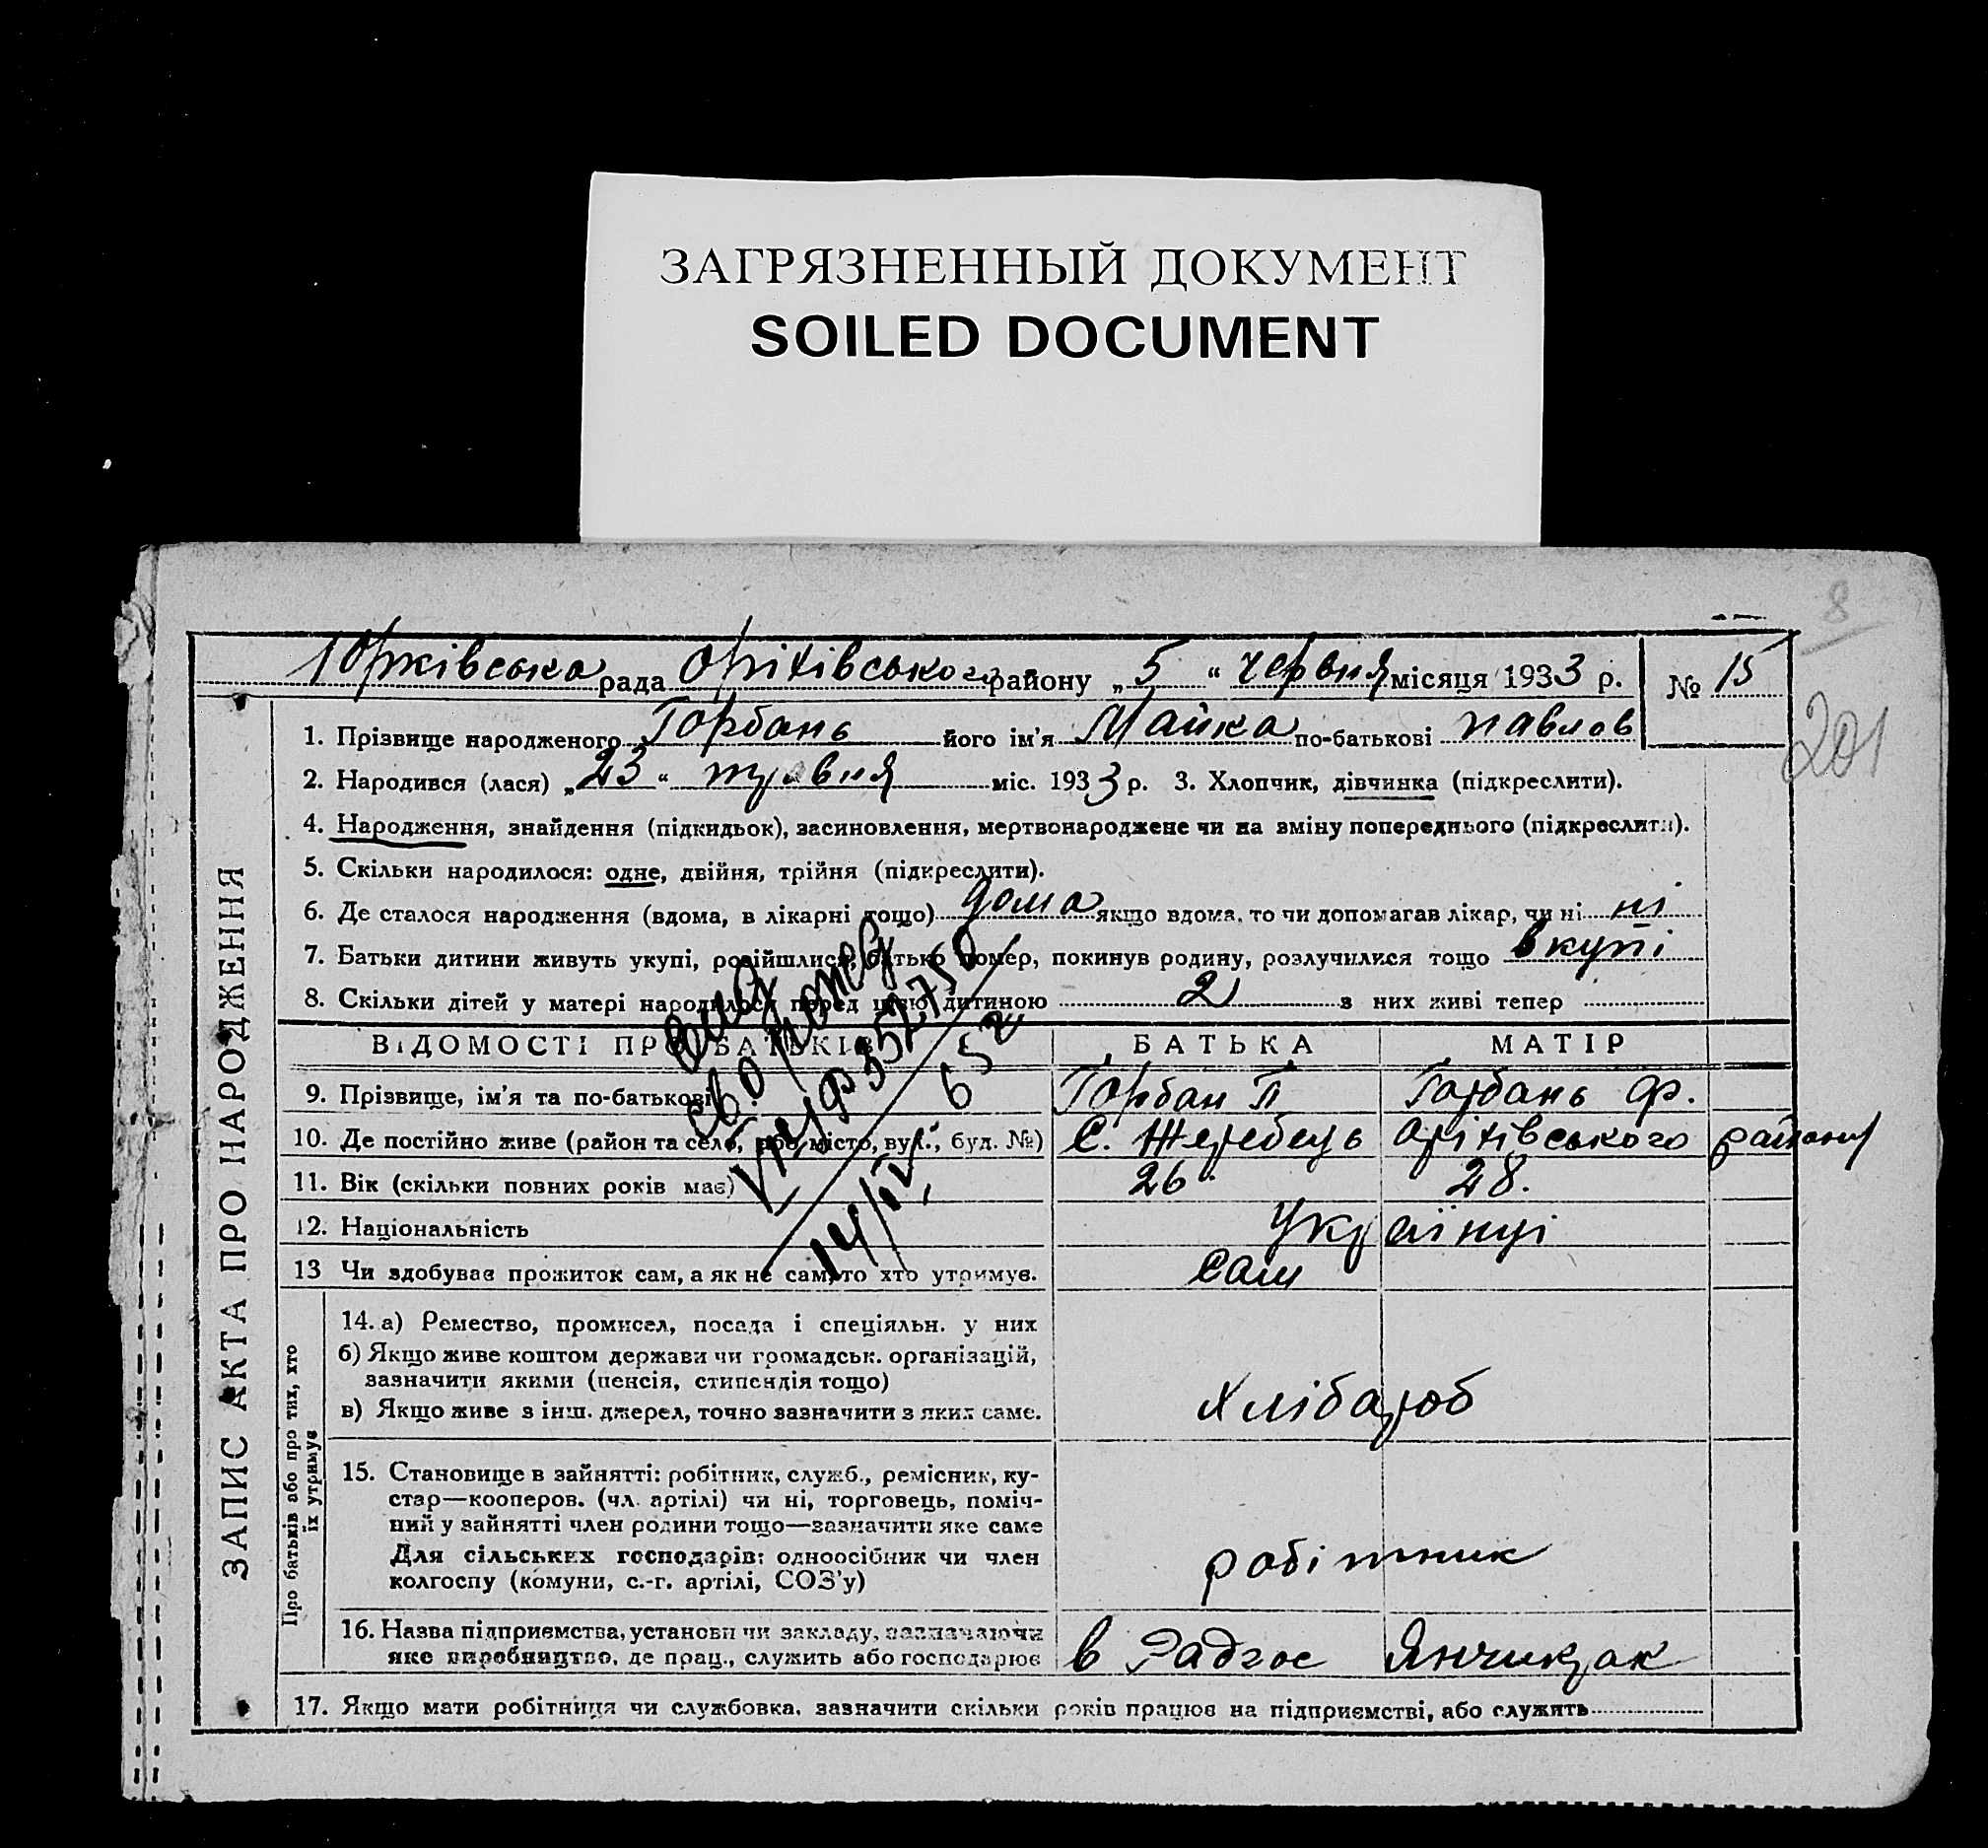 ЗАГРЯЗНЕННЫЙ ДОКУМЕНТ
SOILED DOCUMENT
8
Юрківська рада Оріхівського району „5“ червня місяця 1933 р. № 15
201
1. Прізвище народженого Горбань його ім'я Майка по-батькові павлов
2. Народився (лася) „23“ травня міс. 1933 р. 3. Хлопчик, дівчинка (підкреслити).
4. Народження, знайдення (підкидьок), засиновлення, мертвонароджене чи на зміну попереднього (підкреслити).
5. Скільки народилося: одне, двійня, трійня (підкреслити).
6. Де сталося народження (вдома, в лікарні тощо) дома якщо вдома, то чи допомагав лікар, чи ні ні
7. Батьки дитини живуть укупі, розійшлися, батько помер, покинув родину, розлучилися тощо вкупі
8. Скільки дітей у матері народилося перед цією дитиною 2 з них живі тепер
ВІДОМОСТІ ПРО БАТЬКІВ БАТЬКА МАТІР
9. Прізвище, ім'я та по-батькові Горбан П Горбань Ф.
10. Де постійно живе (район та село, або місто, вул., буд. №) С. Жеребець Оріхівського району
11. Вік (скільки повних років має) 26. 28.
12. Національність Українці
13 Чи здобував прожиток сам, а як не сам, то хто утримує. Сам
14. а) Ремество, промисел, посада і спеціяльн. у них
б) Якщо живе коштом держави чи громадськ. організацій,
зазначити якими (пенсія, стипендія тощо)
в) Якщо живе з інш. джерел, точно зазначити з яких саме.
Хлібароб
15. Становище в зайнятті: робітник, служб., ремісник, ку-
стар—кооперов. (чл. артілі) чи ні, торговець, поміч-
ний у зайнятті член родини тощо—зазначити яке саме
Для сільських господарів: одноосібник чи член
колгоспу (комуни, с.-г. артілі, СОЗ'у)
робітник
16. Назва підприємства, установи чи закладу, зазначаючи
яке виробництво, де прац., служить або господарює
в Радгос Янчикрак
17. Якщо мати робітниця чи службовка, зазначити скільки років працює на підприємстві, або служить
ЗАПИС АКТА ПРО НАРОДЖЕННЯ
Про батьків або про тих, хто
їх утримує
14/IV